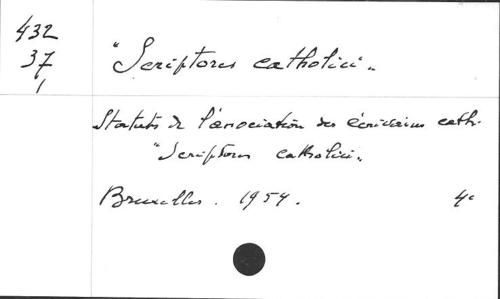 432
37
1
"Scriptores catholici"
Statuts de l'association des écrivains cath.
"Scriptores catholici"
Bruxelles. 1954. 4º